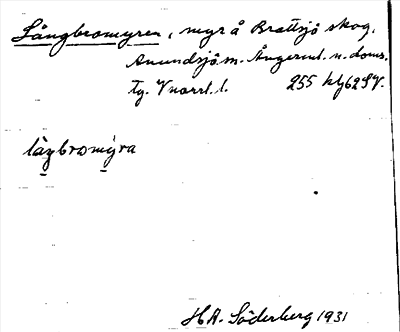 Långbromyren, myr å Brattsjö skog,
Anundsjö sn. Ångerml. n. doms.
tg. Vnorrl. l. 255 kbg62SV.
låŋbromy̱ra
HA. Söderberg 1931